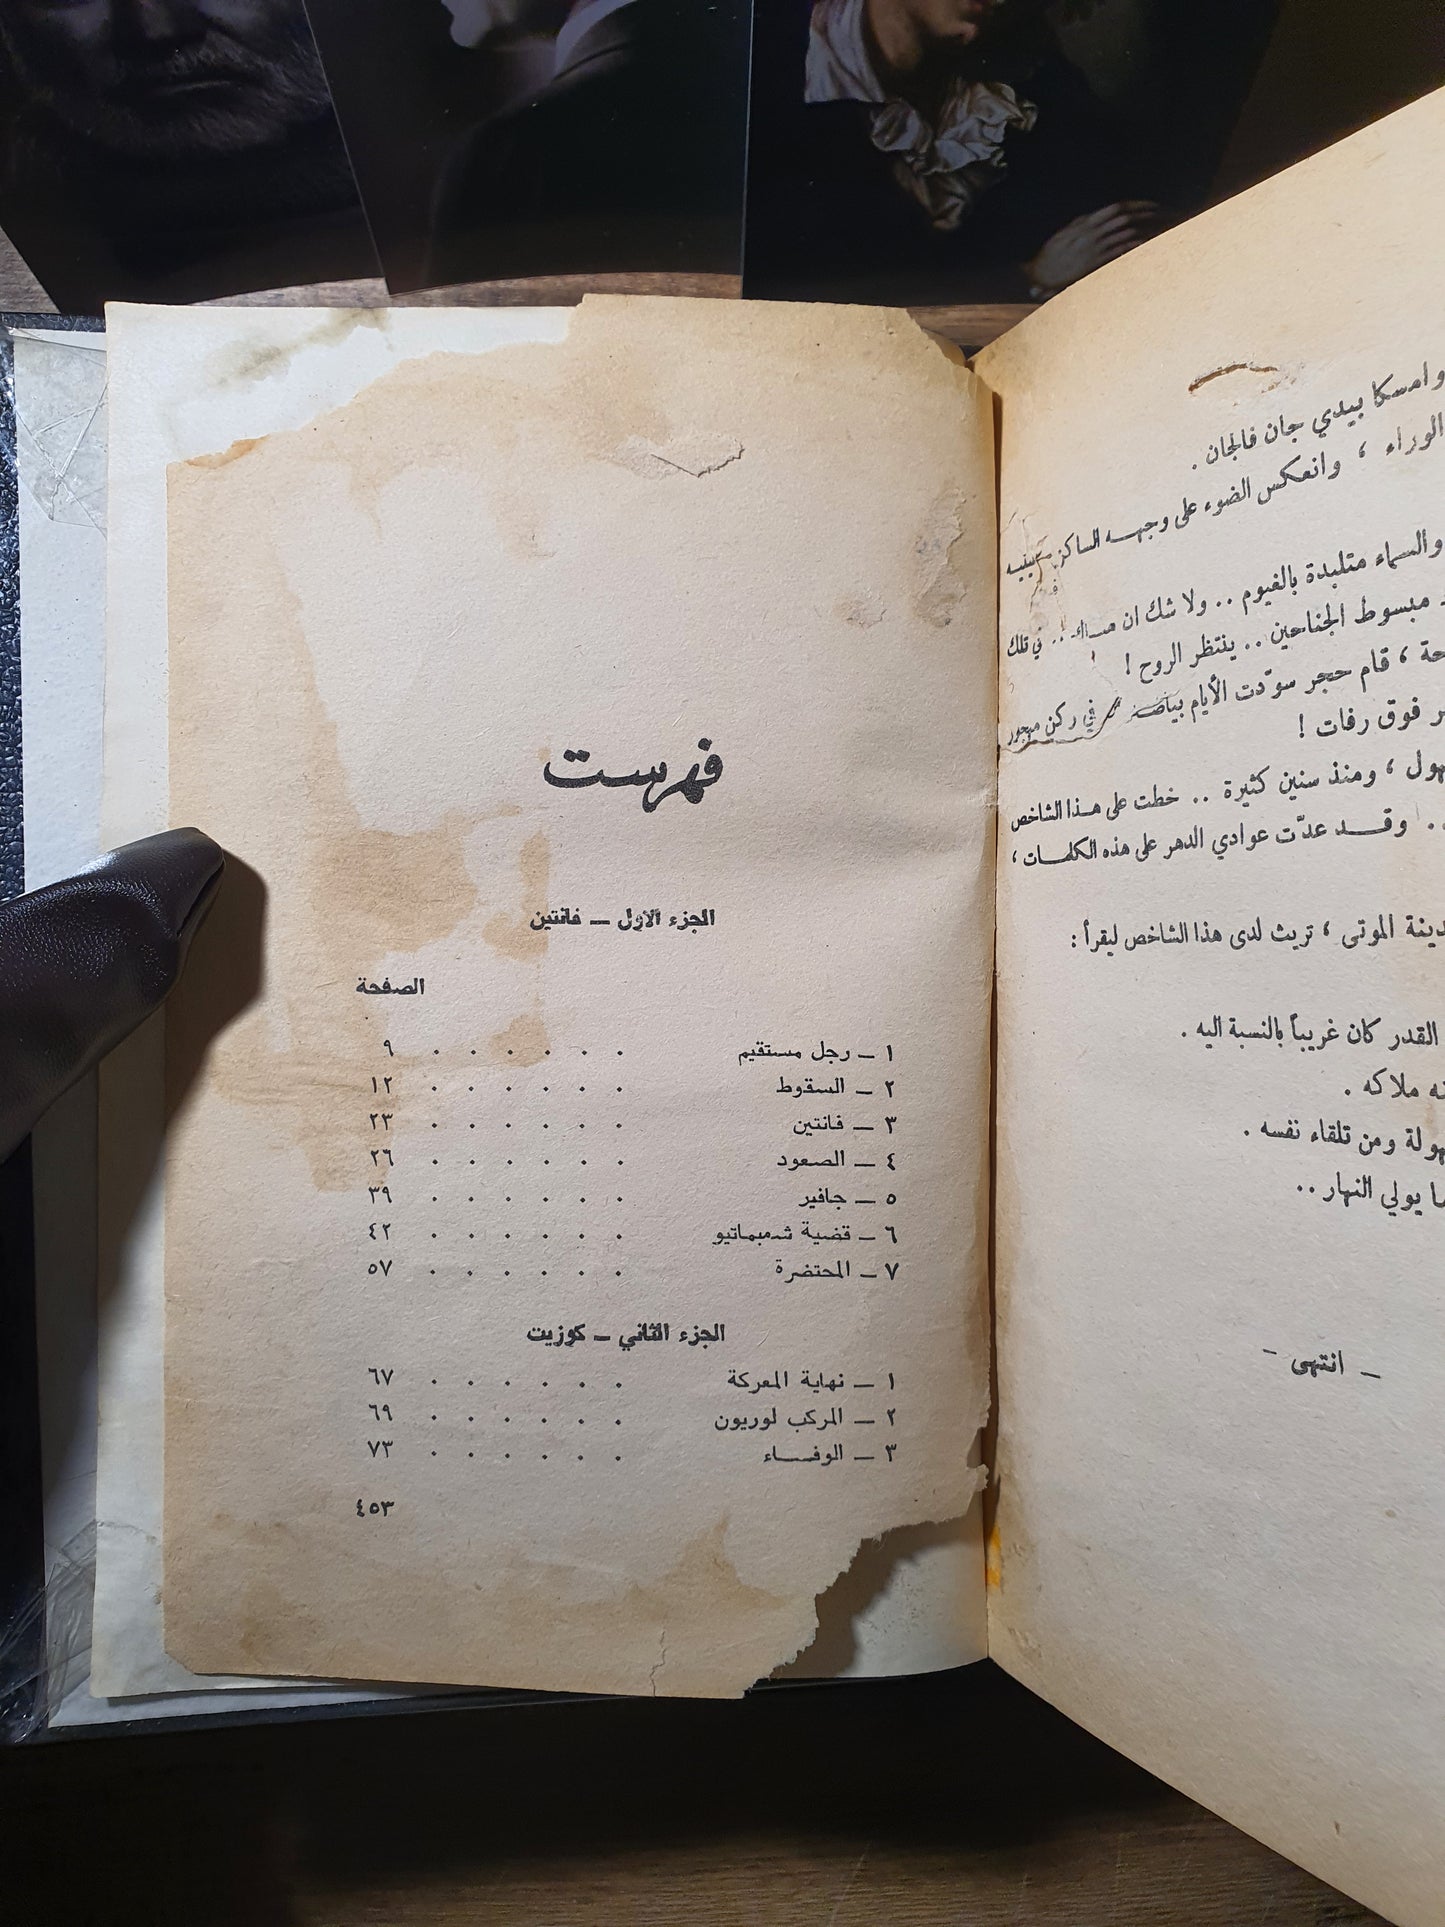 وامسكا بيدي جان فالجان .
الوراء ، وانعكس الضوء على وجهه الساكن
والسماء متلبدة بالغيوم .. ولا شك ان هناك .. في تلك
مبسوط الجناحين .. ينتظر الروح !
قام حجر سوّدت الأيام بياضه في ركن مهجور
فوق رفات !
ومنذ سنين كثيرة .. خطت على هذا الشاخص
وقد عدّت عوادي الدهر على هذه الكلمات ،
الموتى ، تريث لدى هذا الشاخص ليقرأ :
القدر كان غريباً بالنسبة اليه .
ملاكه .
ومن تلقاء نفسه .
يولي النهار ..
ـ انتهى ـ
فهرست
الجزء الاول ـ فانتين
الصفحة
١ ـ رجل مستقيم . . . . . . ٩
٢ ـ السقوط . . . . . . ١٢
٣ ـ فانتين . . . . . . ٢٣
٤ ـ الصعود . . . . . . ٢٦
٥ ـ جافير . . . . . . ٣٩
٦ ـ قضية شمبماتيو . . . . . . ٤٢
٧ ـ المحتضرة . . . . . . ٥٧
الجزء الثاني ـ كوزيت
١ ـ نهاية المعركة . . . . . . ٦٧
٢ ـ المركب لوريون . . . . . . ٦٩
٣ ـ الوفاء . . . . . . ٧٣
٤٥٣